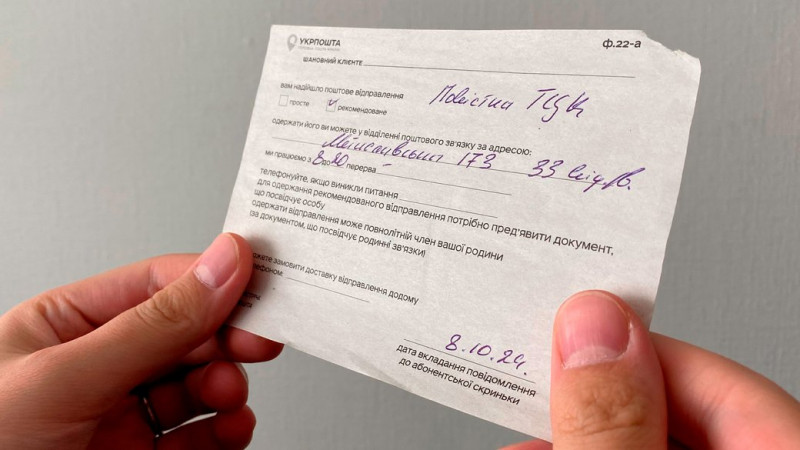 УКРПОШТА
ф.22-а
ШАНОВНИЙ КЛІЄНТЕ
вам надійшло поштове відправлення
Повістка ТЦК
просте рекомендоване
одержати його ви можете у відділенні поштового зв'язку за адресою:
173 33
ми працюємо з 8 до 20 перерва –
телефонуйте, якщо виникли питання
для одержання рекомендованого відправлення потрібно пред'явити документ,
що посвідчує особу
одержати відправлення може повнолітній член вашої родини
(за документом, що посвідчує родинні зв'язки)
можете замовити доставку відправлення додому
телефоном:
8.10.24.
дата вкладання повідомлення
до абонентської скриньки